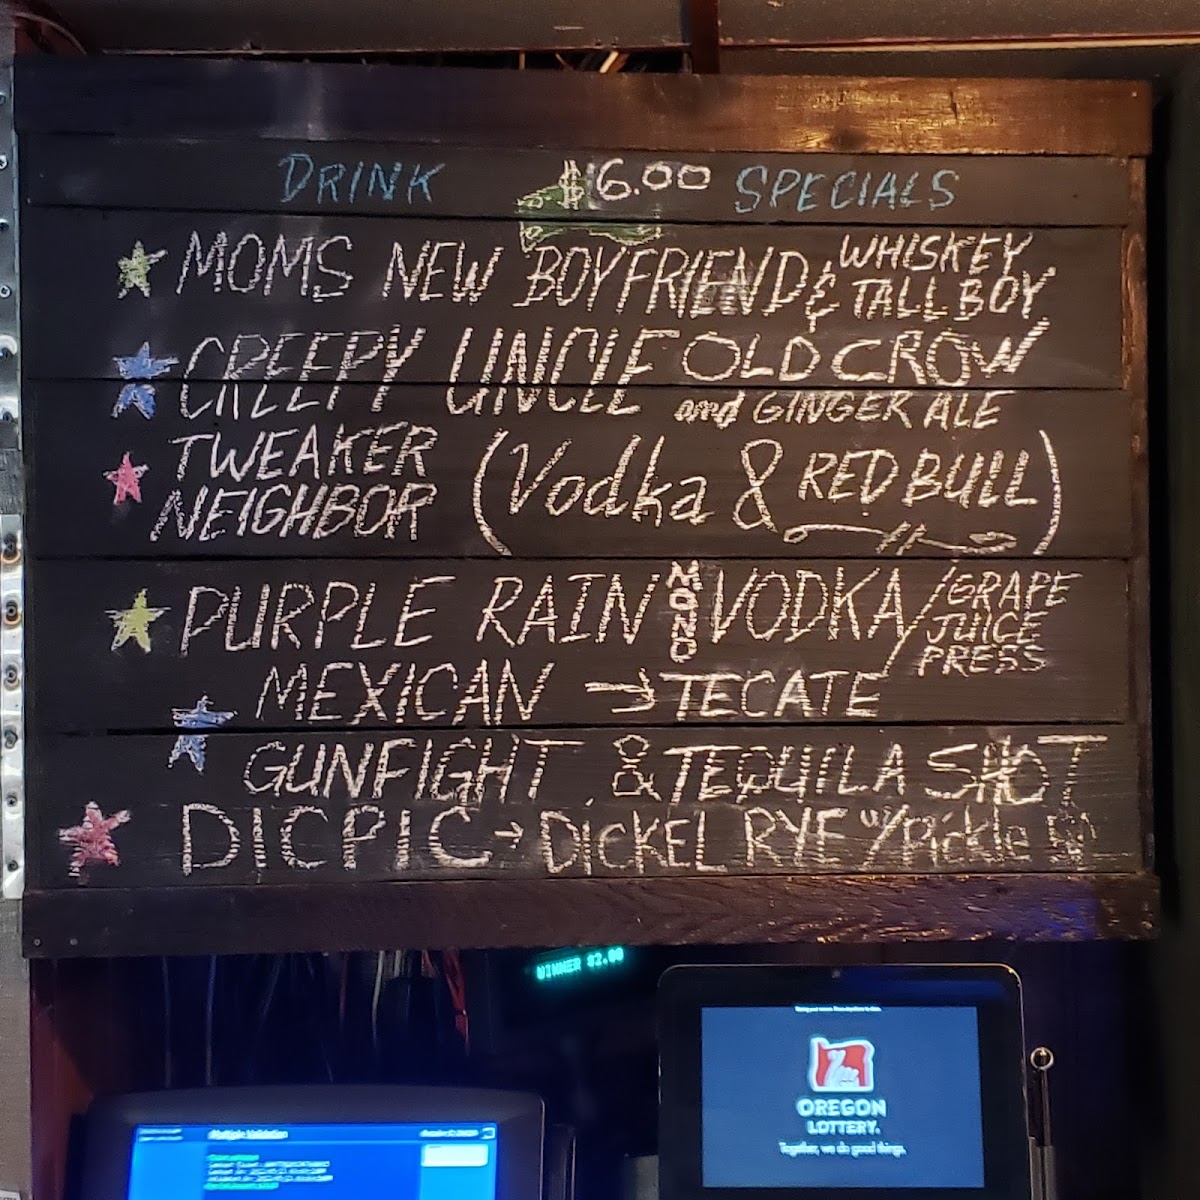 DRINK $6.00 SPECIALS
MOMS NEW BOYFRIEND & WHISKEY TALL BOY
CREEPY UNCLE OLD CROW and GINGER ALE
TWEAKER NEIGHBOR (Vodka & RED BULL)
PURPLE RAIN MONO VODKA / GRAPE JUICE PRESS
MEXICAN → TECATE
GUNFIGHT & TEQUILA SHOT
DIC PIC → DICKEL RYE w/ Pickle
WINNER $2.00
Multiple Validation
OREGON
LOTTERY.
Together, we do good things.